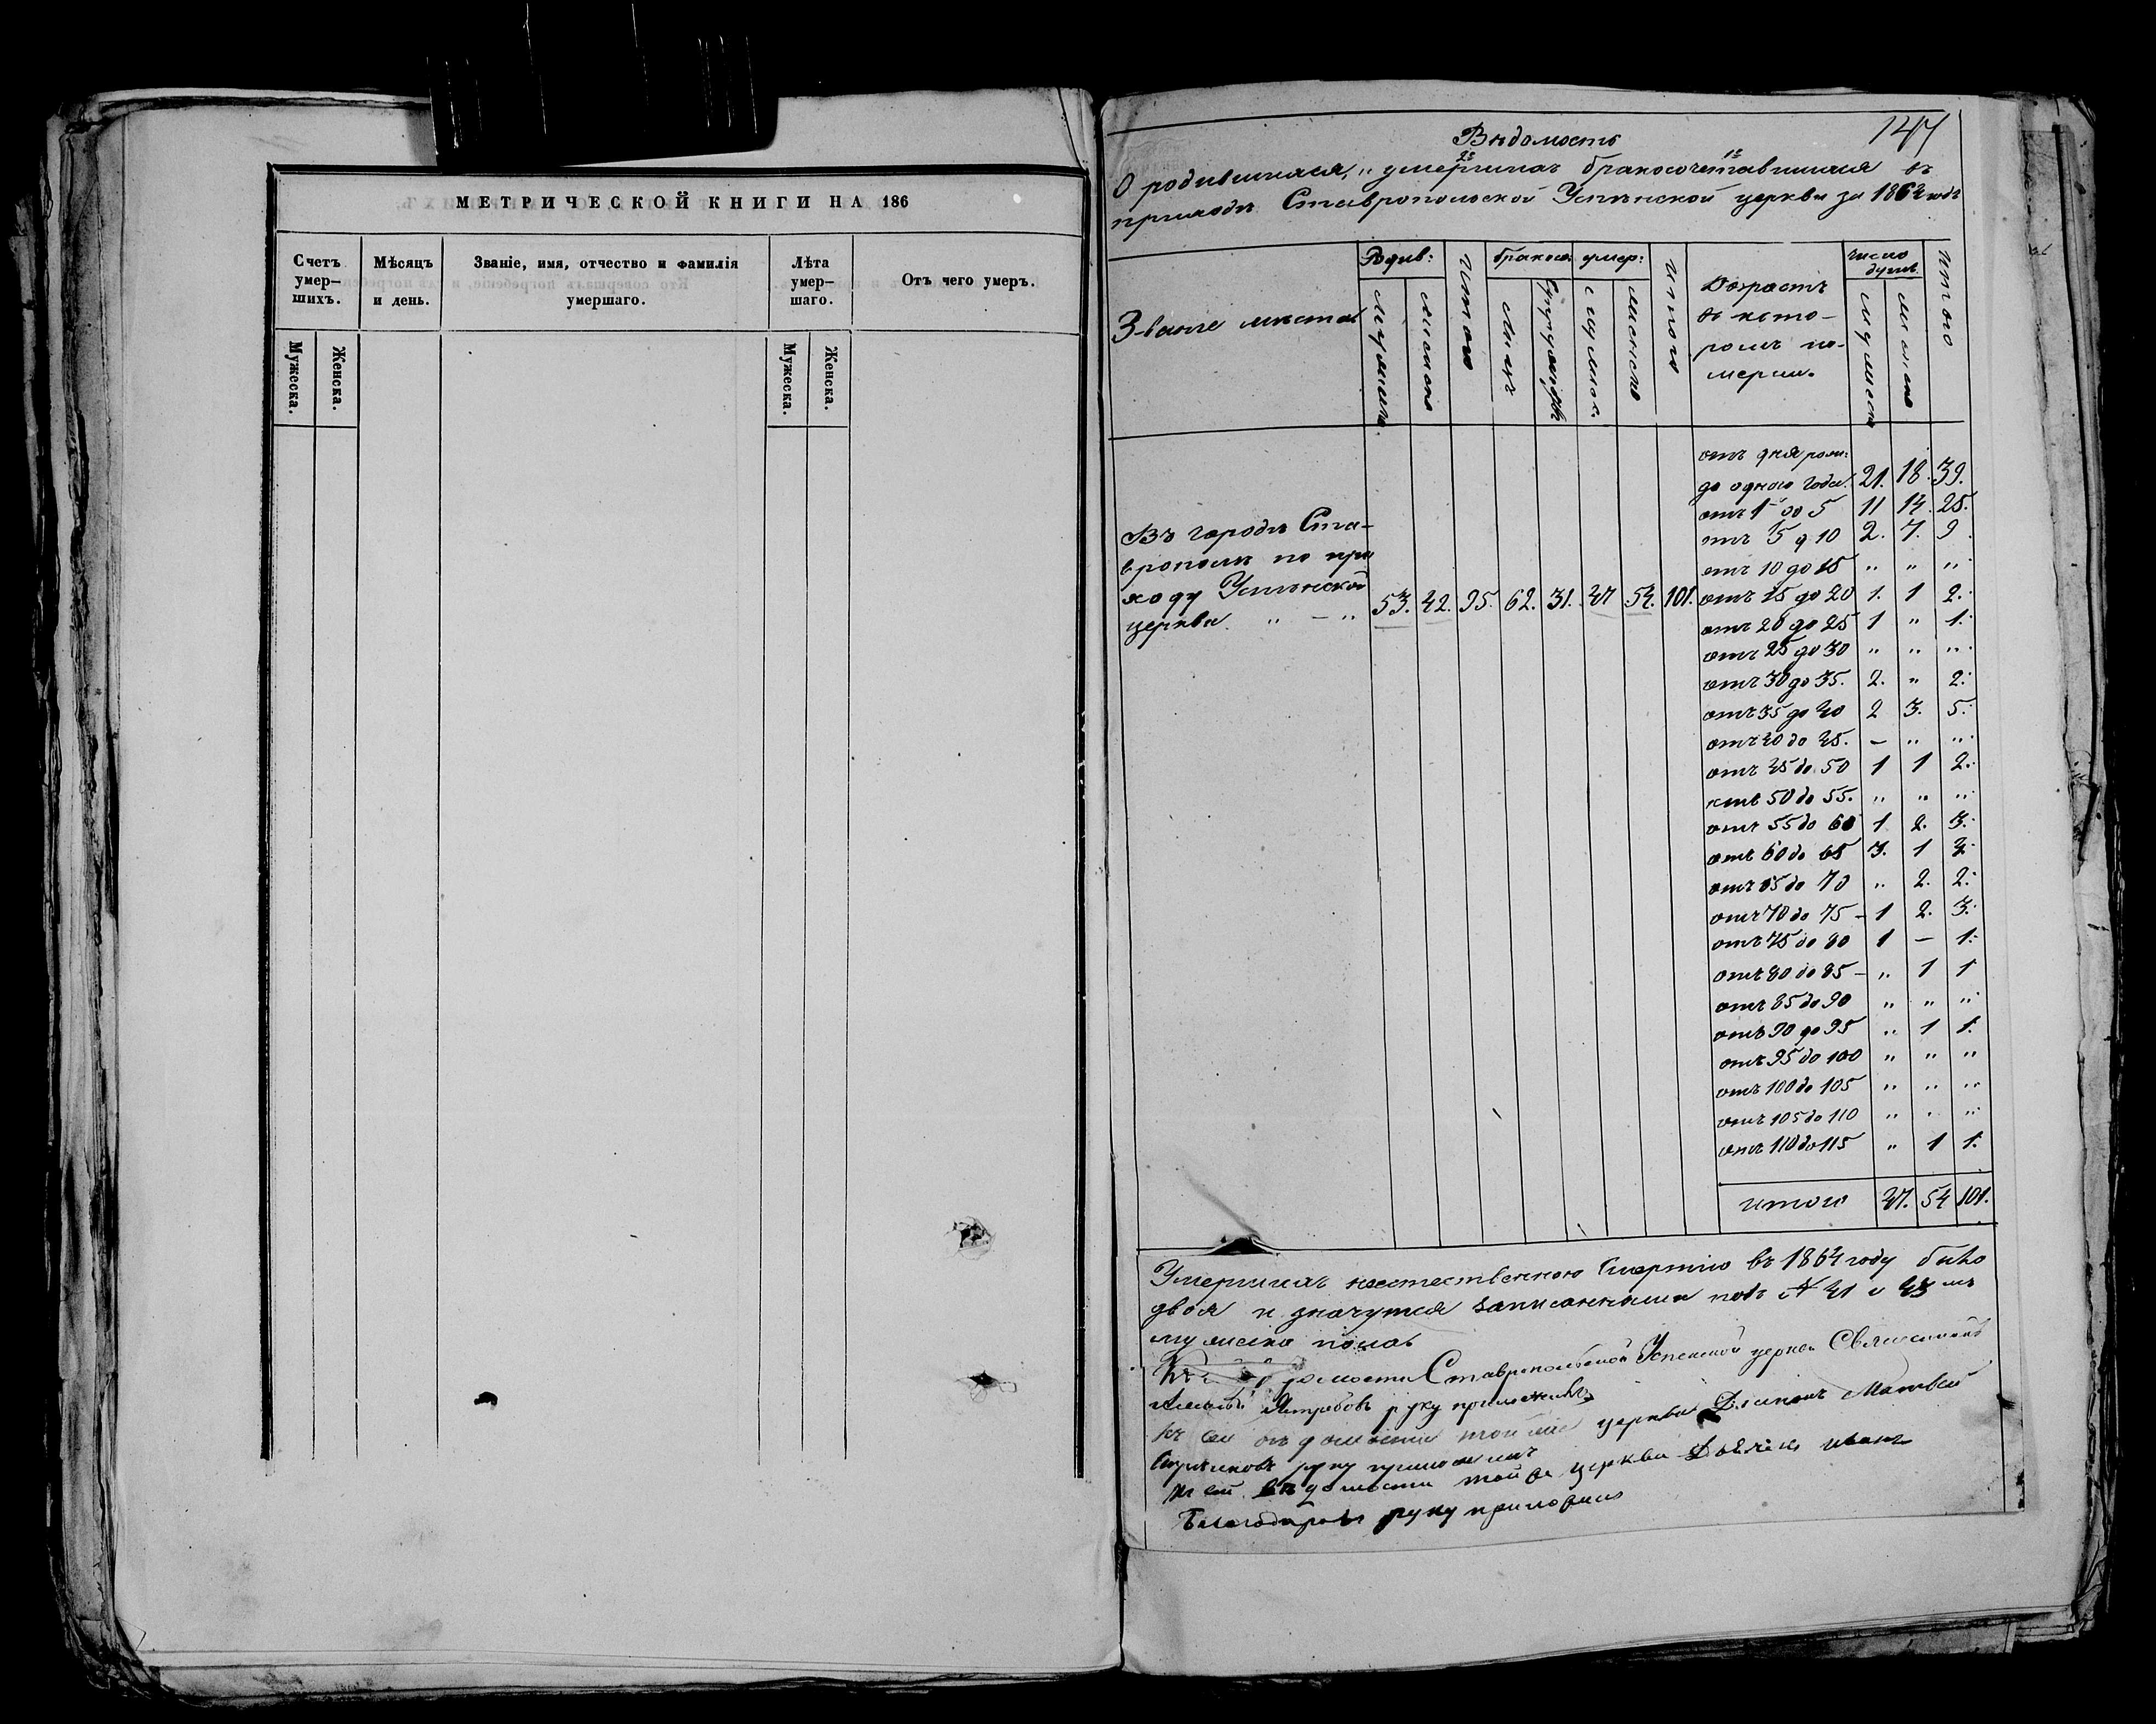 МЕТРИЧЕСКОЙ КНИГИ НА 186
Счетъ умер-шихъ.
Мѣсяцъ и день.
Званіе, имя, отчество и фамилія умершаго.
Лѣта умер-шаго.
Отъ чего умеръ.
Мужеска.
Женска.
Мужеска.
Женска.
147
Вѣдомость
О родившихся, умершихъ бракосочетавшихся въ
приходѣ Ставропольской Успѣнской церкви за 1864 годъ
Званіе мѣста
Родив:
Итого
бракосоч:
умер:
Итого
Возрастъ
въ кото-
ромъ по-
мерли.
число
душъ
итого
отъ дня рож:
до одного года. 21. 18. 39.
отъ 1 до 5 11 14. 25.
отъ 5 д 10 2. 7. 9.
отъ 10 до 15 " " "
отъ 15 до 20 1. 1 2.
отъ 20 до 25 1 " 1.
отъ 25 до 30 " " "
отъ 30 до 35. 2. " 2.
отъ 35 до 40 2 3. 5.
отъ 40 до 45. – " "
отъ 45 до 50 1 1 2.
отъ 50 до 55. " " "
отъ 55 до 60 1 2. 3.
отъ 60 до 65 3. 1
отъ 65 до 70 " 2. 2.
отъ 70 до 75 – 1 2. 3.
отъ 75 до 80 1 – 1.
отъ 80 до 85 – " 1 1
отъ 85 до 90 " " "
отъ 90 до 95 " 1 1.
отъ 95 до 100 " " "
отъ 100 до 105 " " "
отъ 105 до 110 " " "
отъ 110 до 115 " 1 1.
итого 47. 54 101.
Въ городѣ Ста-
врополѣ по при
ходу Успѣнской
церкви. " – "
53. 42. 95. 62. 31. 47 54. 101.
Умершихъ неестественною смертію въ 1864 году было
двоя и значутся записанными подъ № 41 и 43 мъ
мужеска пола
Ставропольской Успенской церкви Священникъ
Ястребовъ руку приложилъ
Къ сей вѣдомости той же церкви Діаконъ Матвей
руку приложилъ
Къ сей вѣдомости той же церкви Дьячекъ Иванъ
руку приложилъ